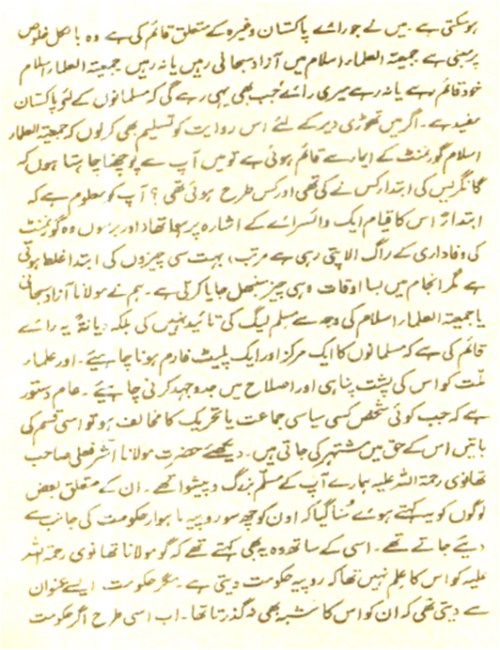 ہو سکتی ہے۔ میں نے جو رائے پاکستان وغیرہ کے متعلق قائم کی ہے وہ بالکل خلوص
پر مبنی ہے جمیعتہ العلماء اسلام میں آزاد سبحانی رہیں یا نہ رہیں جمیعتہ العلماء اسلام
خود قائم رہے یا نہ رہے میری رائے جب بھی یہی رہے گی کہ مسلمانوں کے لئے پاکستان
مفید ہے۔ اگر میں تھوڑی دیر کے لئے اس روایت کو تسلیم بھی کر لوں کہ جمعیتہ العلماء
اسلام گورنمنٹ کے ایما سے قائم ہوئی ہے تو میں آپ سے پوچھنا چاہتا ہوں کہ
کانگریس کی ابتدا کس نے کی تھی اور کس طرح ہوئی تھی؟ آپ کو معلوم ہے کہ
ابتداءً اس کا قیام ایک وائسرائے کے اشارہ پر ہوا تھا اور برسوں وہ گورنمنٹ
کی وفاداری کے راگ الاپتی رہی ہے مرتب، بہت سی چیزوں کی ابتدا غلط ہوتی
ہے مگر انجام میں بسا اوقات وہی چیز سنبھل جایا کرتی ہے۔ ہم نے مولانا آزاد سبحانی
یا جمیعتہ العلماء اسلام کی وجہ سے مسلم لیگ کی تائید نہیں کی بلکہ دیانۃً یہ رائے
قائم کی ہے کہ مسلمانوں کا ایک مرکز اور ایک پلیٹ فارم ہونا چاہیئے۔ اور علماء
ملت کو اس کی پشت پناہی اور اصلاح میں جدوجہد کرنی چاہیئے۔ عام دستور
ہے کہ جب کوئی شخص کسی سیاسی جماعت یا تحریک کا مخالف ہو تو اسی قسم کی
باتیں اس کے حق میں مشتہر کی جاتی ہیں۔ دیکھئے حضرت مولانا اشرفعلی صاحب
تھانوی رحمۃ اللہ علیہ ہمارے آپ کے مسلّم بزرگ و پیشوا تھے۔ ان کے متعلق بعض
لوگوں کو یہ کہتے ہوئے سُنا گیا کہ اون کو چھ سو روپیہ ماہوار حکومت کی جانب سے
دیئے جاتے تھے۔ اسی کے ساتھ وہ یہ بھی کہتے تھے کہ گو مولانا تھانوی رحمۃ اللہ
علیہ کو اس کا علم نہیں تھا کہ روپیہ حکومت دیتی ہے۔ مگر حکومت ایسے عنوان
سے دیتی تھی کہ ان کو اس کا شبہ بھی نہ گذرتا تھا۔ اب اسی طرح اگر حکومت